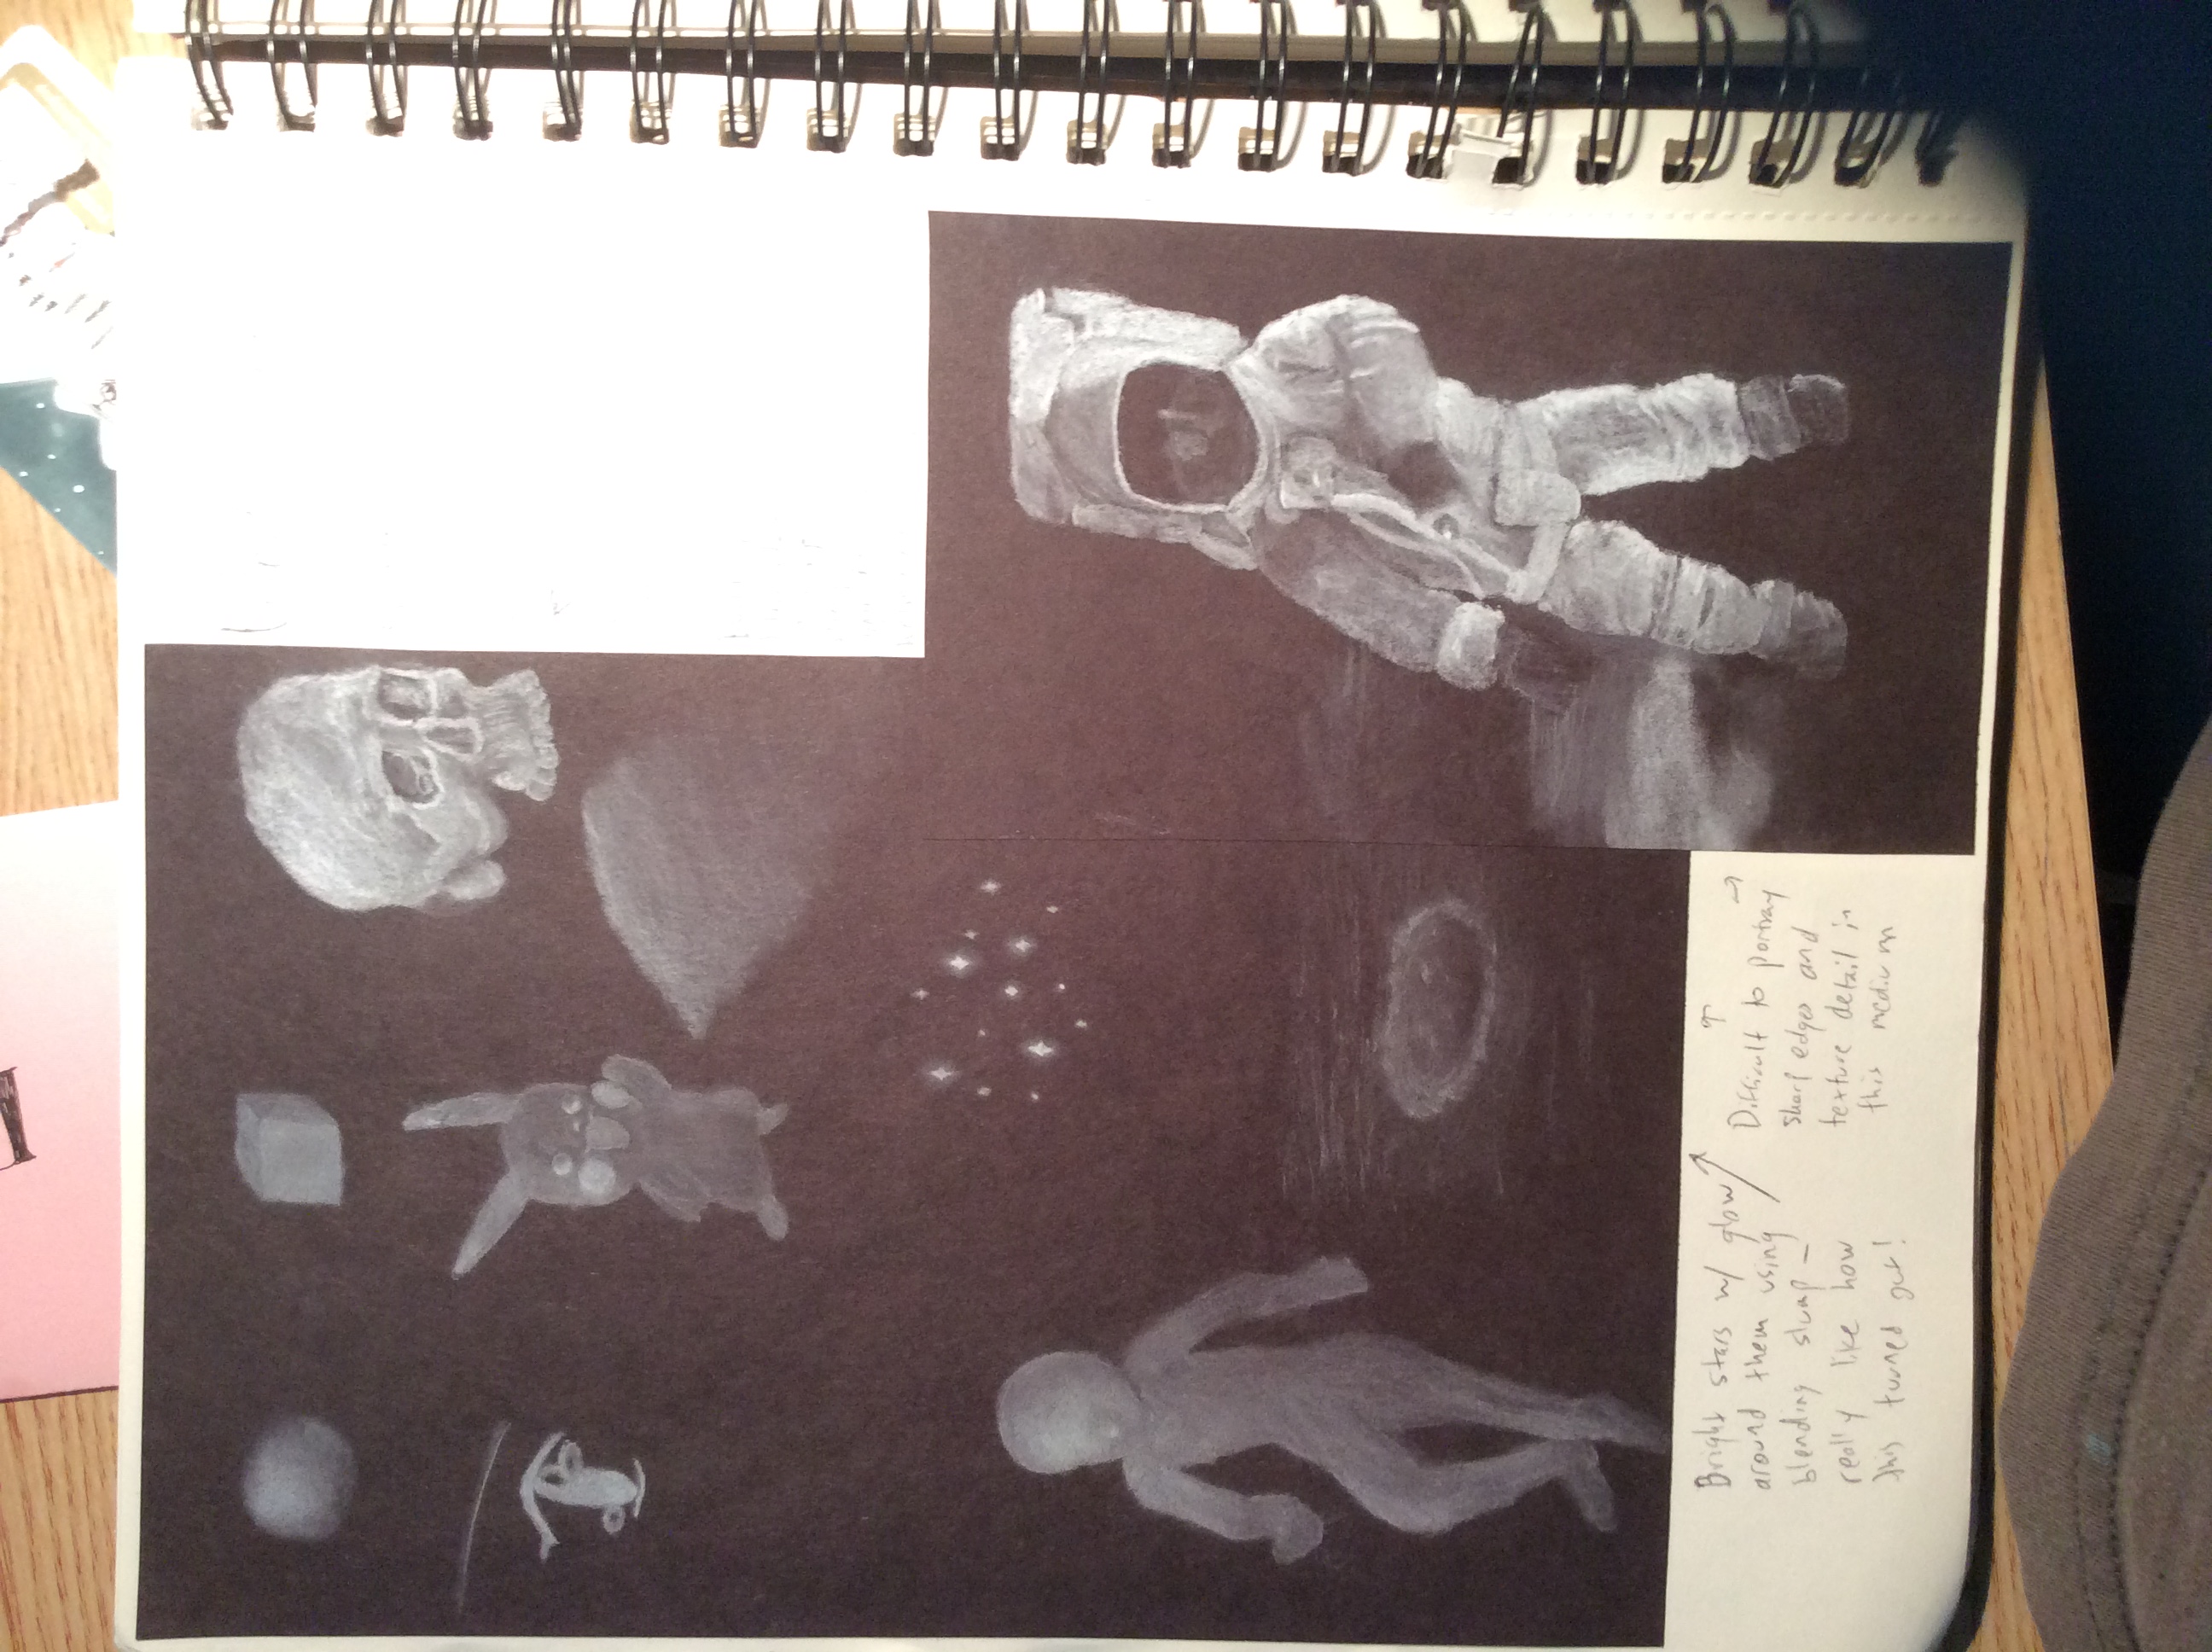 Bright stars w/ glow ↗
around them using
blending stump –
really like how
this turned out!
↑
Difficult to portray →
sharp edges and
texture detail in
this medium